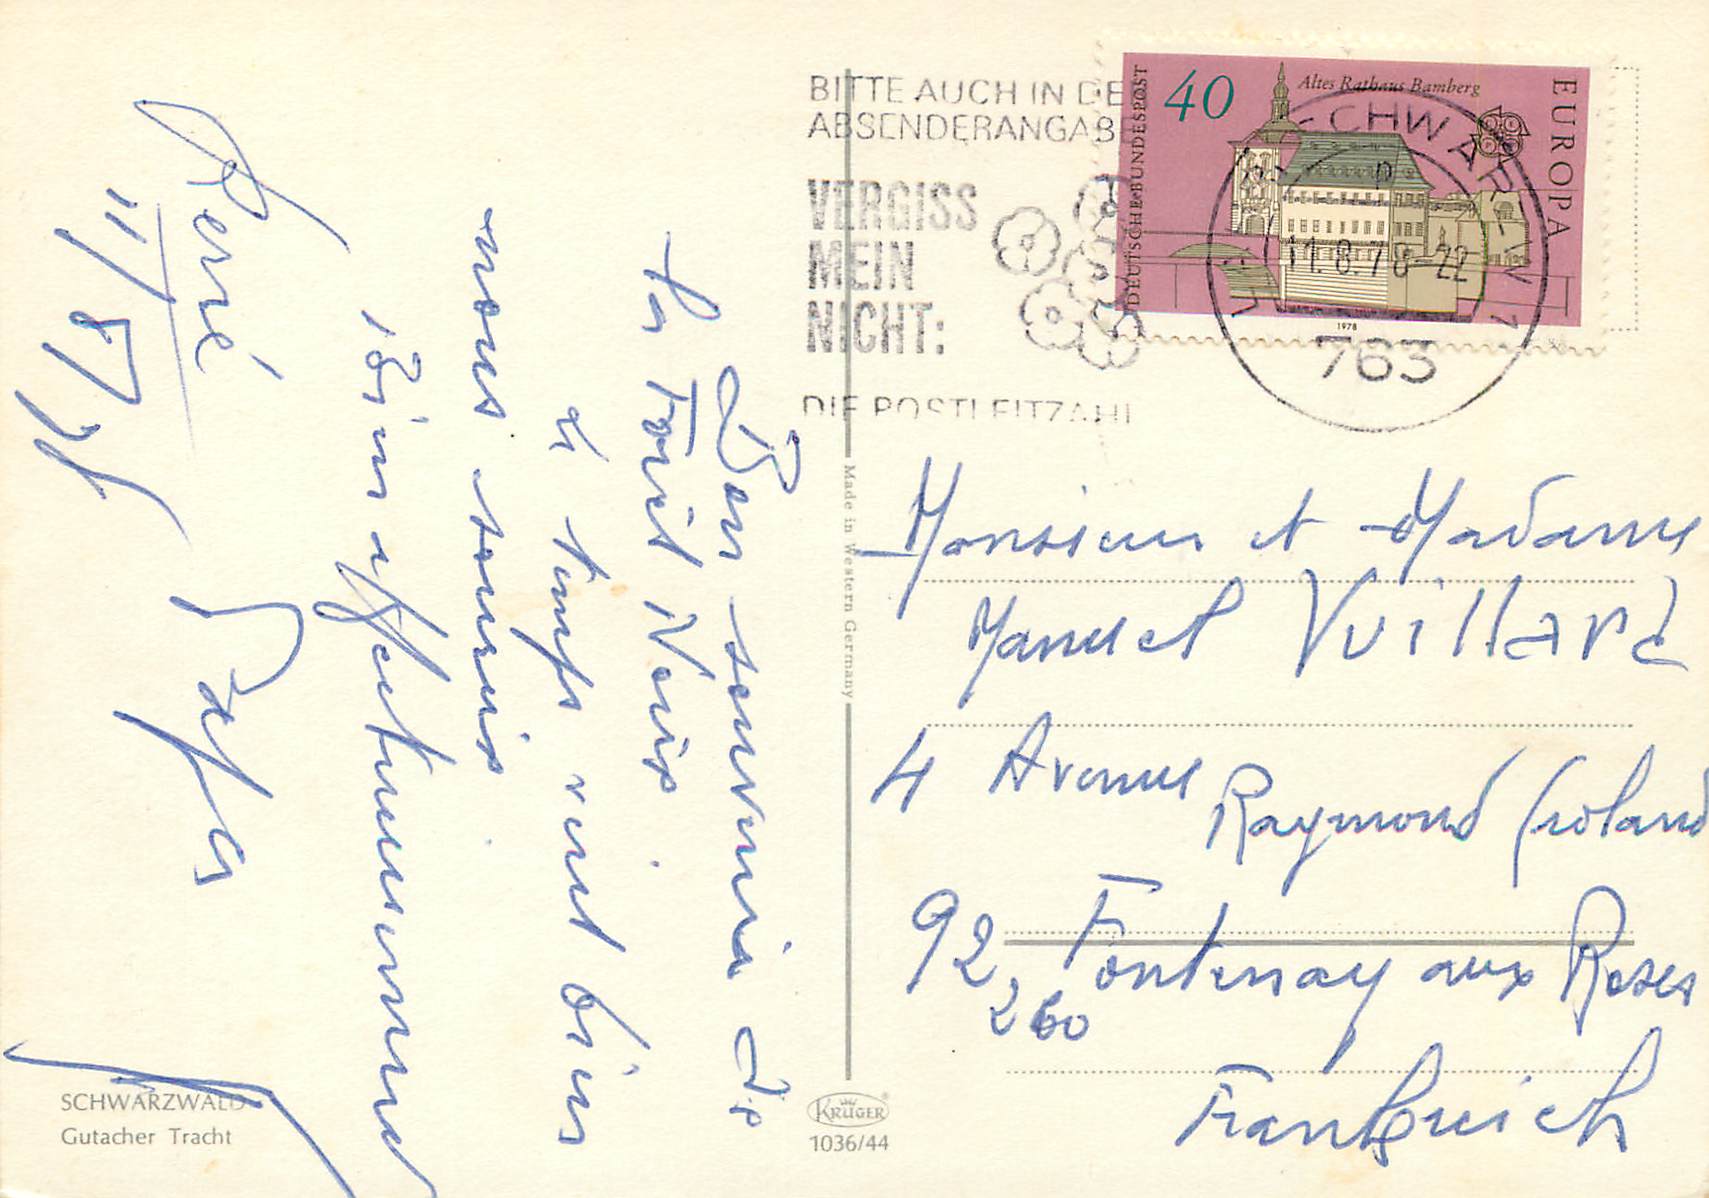 BITTE AUCH IN DE
ABSENDERANGABE
VERGISS
MEIN
NICHT:
DIE POSTLEITZAHL
DEUTSCHE BUNDESPOST
40
Altes Rathaus Bamberg
EUROPA
1978
11.8.78-22
763
Bon souvenir de
la Forêt Noire
le temps veut bien
nous sourire.
Bien affectueusement
René
11/8/78
Monsieur et Madame
Manuel Vuillard
4 Avenue
Raymond Croland
92 Fontenay aux Roses
260
Frankreich
Made in Western Germany
SCHWARZWALD
Gutacher Tracht
KRÜGER
1036/44